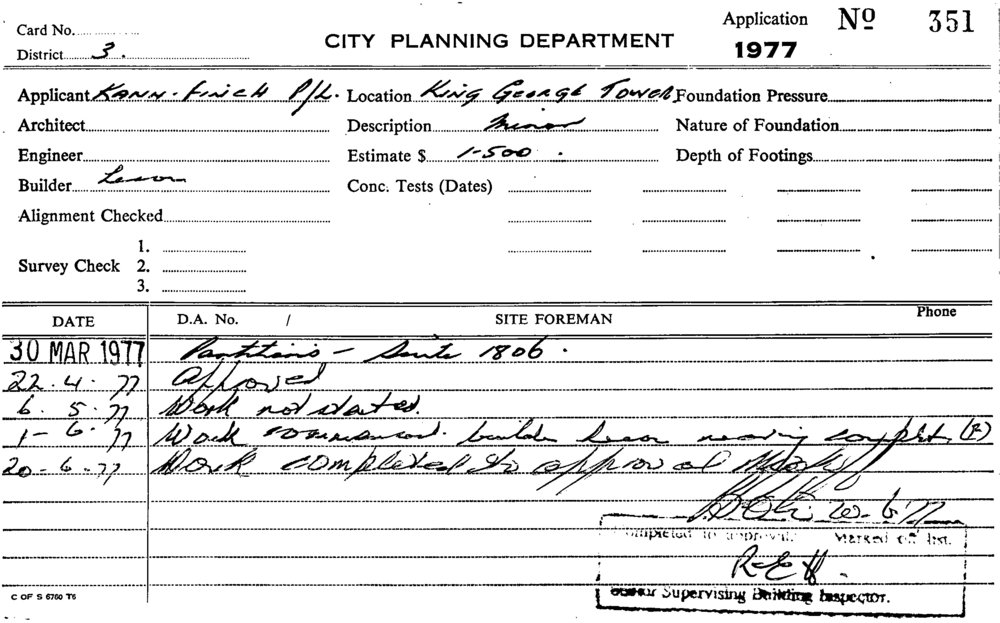 Card No.
District 3.
CITY PLANNING DEPARTMENT
Application No 351
1977
Applicant KANN-FINCH P/L. Location KING GEORGE TOWER Foundation Pressure
Architect Description Minor Nature of Foundation
Engineer Estimate $ 1-500. Depth of Footings
Builder Conc. Tests (Dates)
Alignment Checked
1.
Survey Check 2.
3.
DATE D.A. No. / SITE FOREMAN Phone
30 MAR 1977 Partitions - Suite 1806.
22.4.77 Approved
6.5.77 Work not started.
1-6.77 Work commenced. builder nearing complet.
20-6-77 Work completed to approval
Completed to approval. Marked off list.
R.E.H.
Senior Supervising Building Inspector.
C OF S 6760 T6